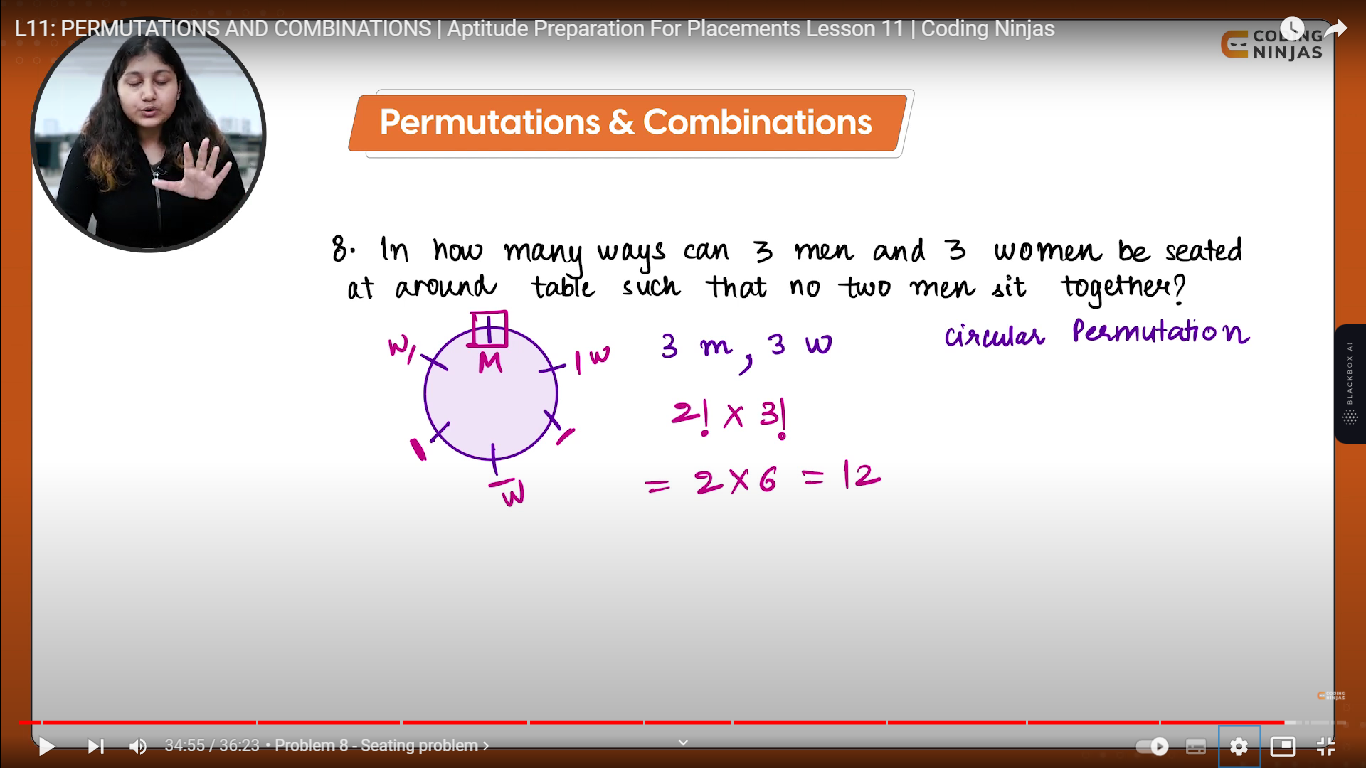 L11: PERMUTATIONS AND COMBINATIONS | Aptitude Preparation For Placements Lesson 11 | Coding Ninjas
CODING
NINJAS
Permutations & Combinations
8. In how many ways can 3 men and 3 women be seated
at around table such that no two men sit together?
circular Permutation
W
M
W
W
3 m, 3 w
2! x 3!
= 2 x 6 = 12
BLACKBOX AI
CODING
NINJAS
34:55 / 36:23 • Problem 8 - Seating problem >